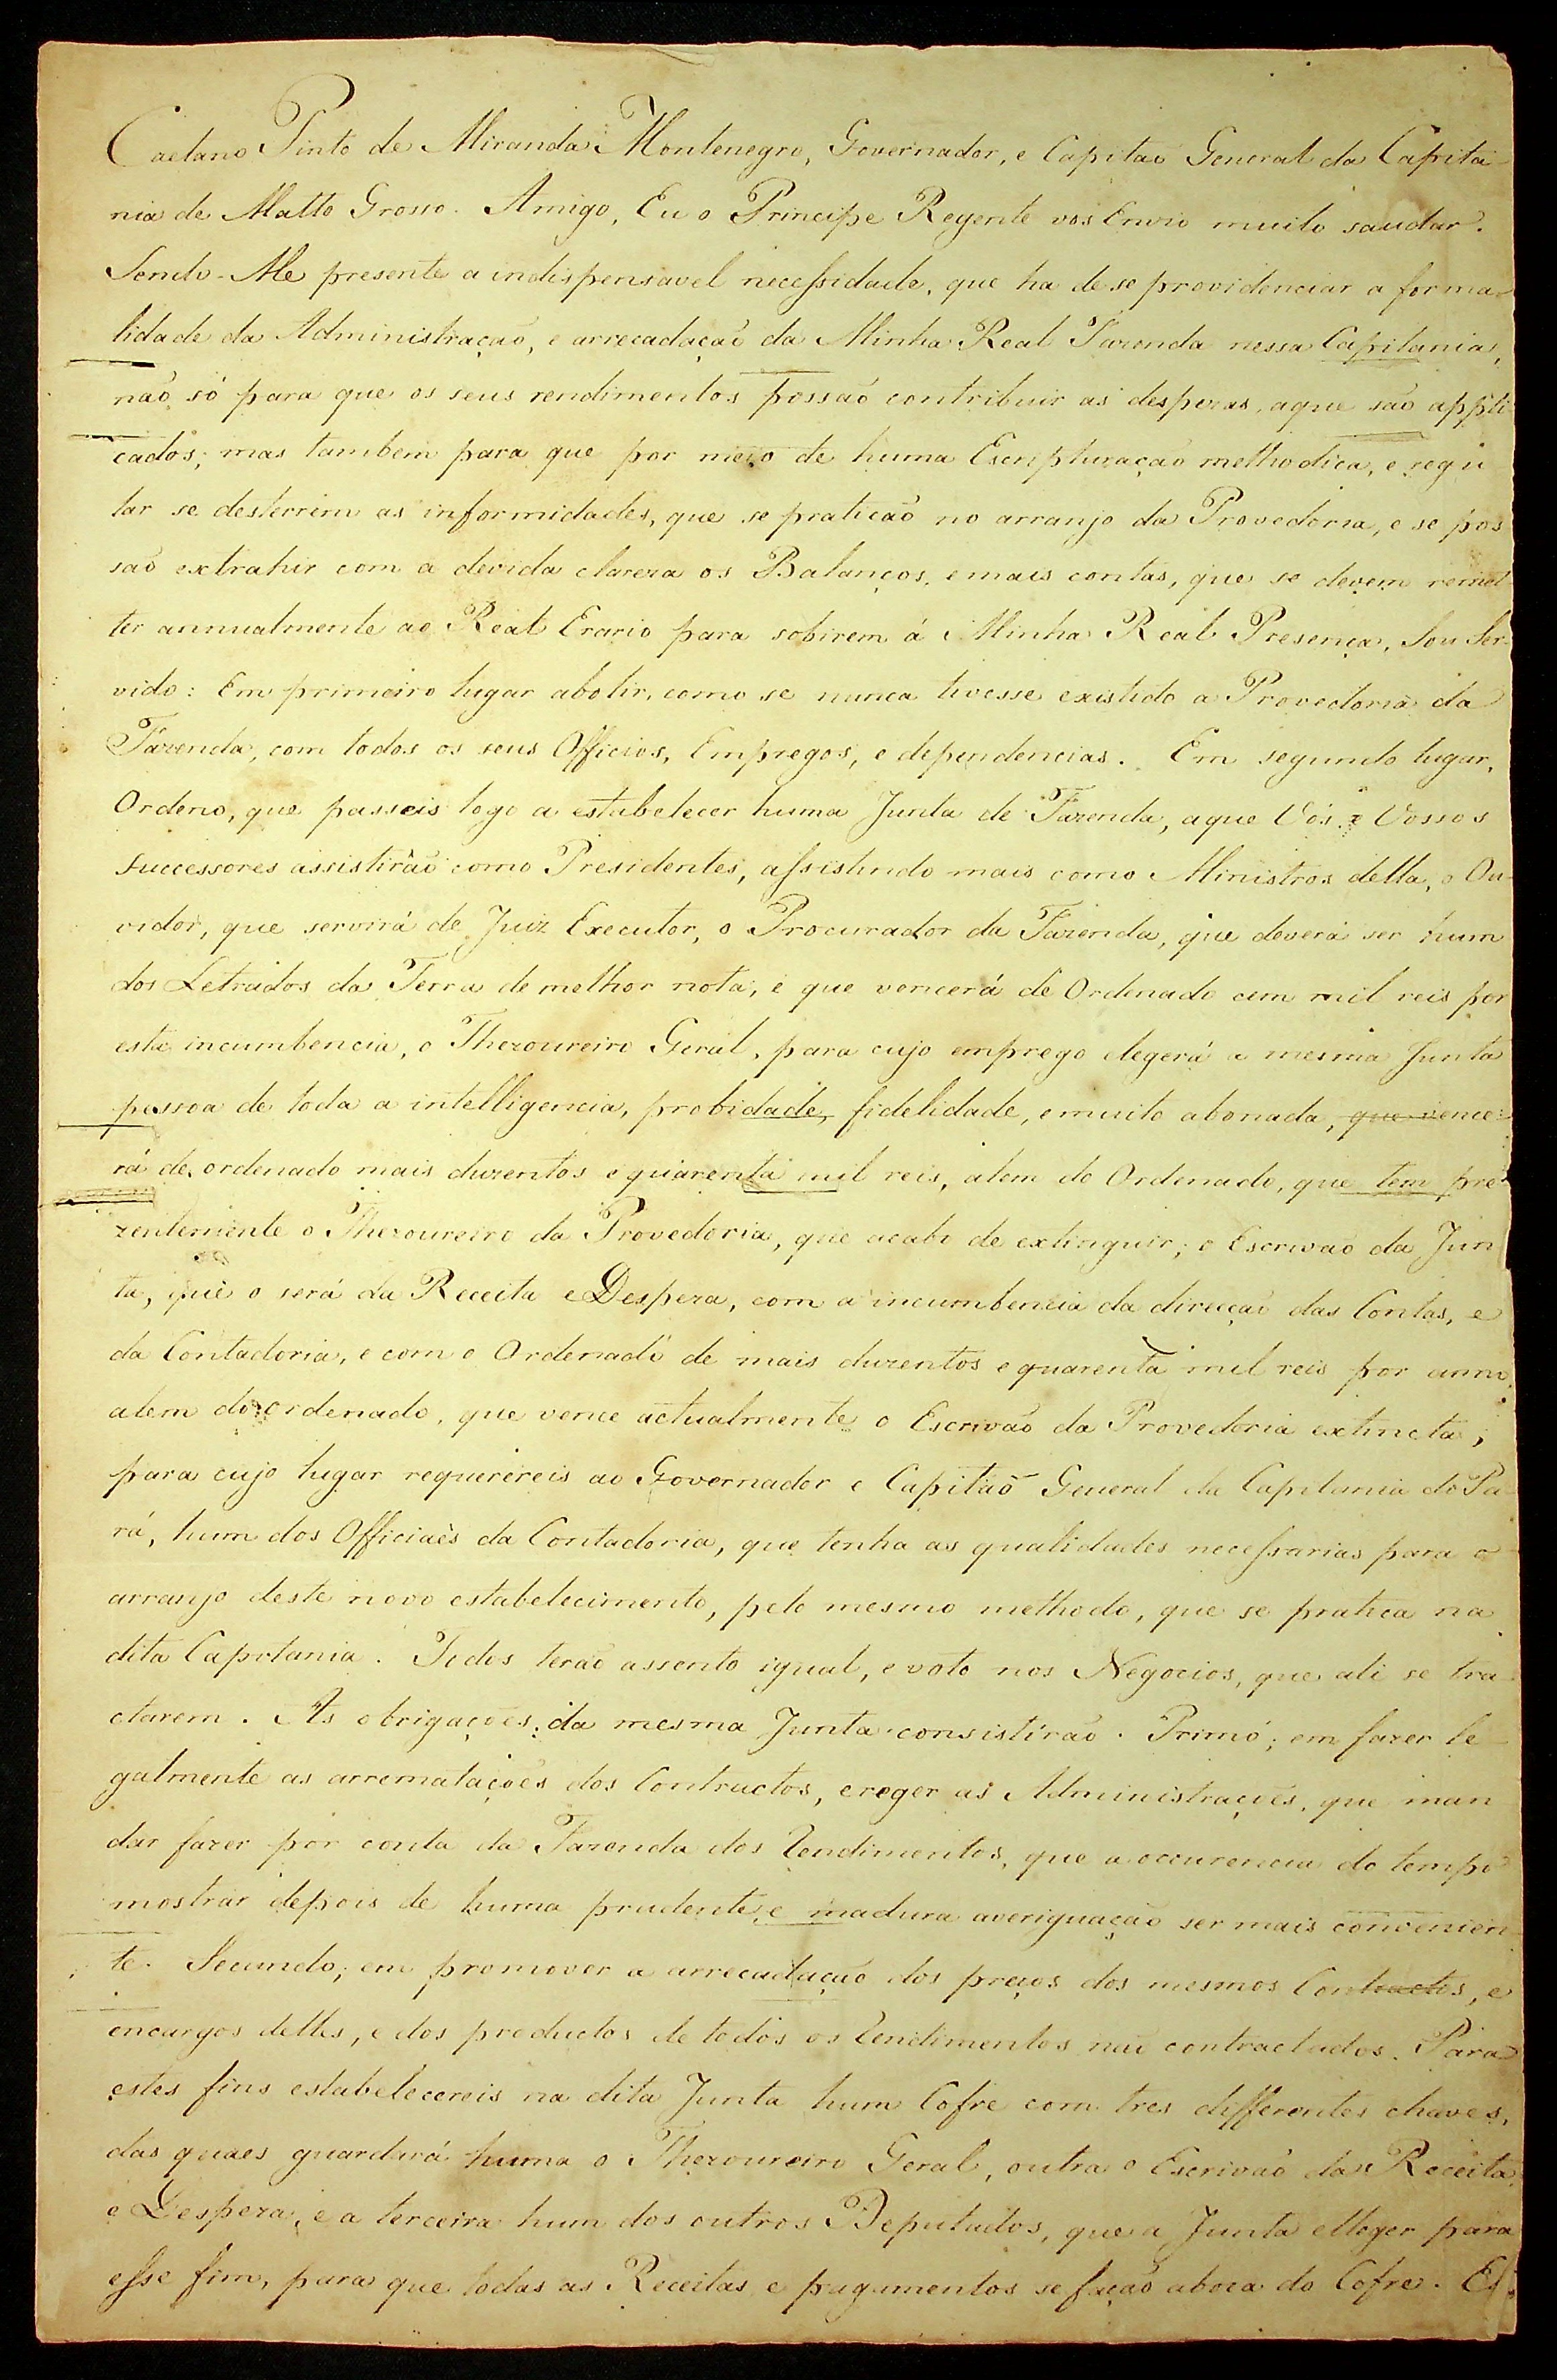 Caetano Pinto de Miranda Montenegro, Governador, e Capitaõ General da Capita-
nia de Matto Grosso. Amigo, Eu o Principe Regente vos Envio muito saudar.
Sendo-Me presente a indispensavel necessidade, que ha de se providenciar a forma-
lidade da Administraçaõ, e arrecadaçaõ da Minha Real Fazenda nessa Capitania,
naõ só para que os seus rendimentos possaõ contribuir as despezas, aque saõ appli
cados; mas tambem para que por meio de huma Escripturaçaõ methodica, e regu
lar se desterrem as informidades, que se praticaõ no arranjo da Provedoria, e se pos
saõ extrahir com a devida clareza os Balanços, emais contas, que se devem remet
ter annualmente ao Real Erario para sobirem á Minha Real Presença, Sou Ser-
vido: Em primeiro lugar abolir, como se nunca tivesse existido a Provedoria da
Fazenda, com todos os seus Officios, Empregos, e dependencias. Em segundo lugar,
Ordeno, que passeis logo a estabelecer huma Junta de Fazenda, aque Vós, e Vossos
Successores assistiraõ como Presidentes, assistindo mais como Ministros della, o Ou-
vidor, que servirá de Juiz Executor, o Procurador da Fazenda, que deverá ser hum
dos Letrados da Terra de melhor nota, e que vencerá de Ordenado cem mil reis por
esta incumbencia, o Thezoureiro Geral, para cujo emprego elegerá a mesma Junta
pessoa de toda a intelligencia, probidade, fidelidade, emuito abonada, que vence-
rá de ordenado mais duzentos equarenta mil reis, alem do Ordenado, que tem pre-
zentemente o Thezoureiro da Provedoria, que acabo de extinguir; o Escrivaõ da Jun
ta, que o será da Receita eDespeza, com a incumbencia da direcçaõ das Contas, e
da Contadoria, e com o Ordenado de mais duzentos equarenta mil reis por anno,
alem do ordenado, que vence actualmente o Escrivaõ da Provedoria extincta;
para cujo lugar requirireis ao Governador e Capitaõ General da Capitania do Pa-
rá, hum dos Officiaes da Contadoria, que tenha as qualidades necessarias para o
arranjo deste novo estabelecimento, pelo mesmo methodo, que se pratica na
dita Capitania. Todos teraõ assento igual, e voto nos Negocios, que ali se tra-
ctarem. As obrigações da mesma Junta consistiraõ. Primó; em fazer le-
galmente as arrematações dos Contractos, ereger as Administrações, que man
dar fazer por conta da Fazenda dos Rendimentos, que a occurencia do tempo
mostrar depois de huma prudente, e madura averiguaçaõ ser mais convenien
te. Secundo; em promover a arrecadaçaõ dos preços dos mesmos Contractos, e
encargos delles, e dos productos de todos os Rendimentos naõ contractados. Para
estes fins estabelecereis na dita Junta hum Cofre com tres differentes chaves,
das quaes guardará huma o Thezoureiro Geral, outra o Escrivaõ da Receita,
e Despeza, e a terceira hum dos outros Deputados, que a Junta elleger para
esse fim, para que todas as Receitas e pagamentos se façaõ aboca do Cofre.